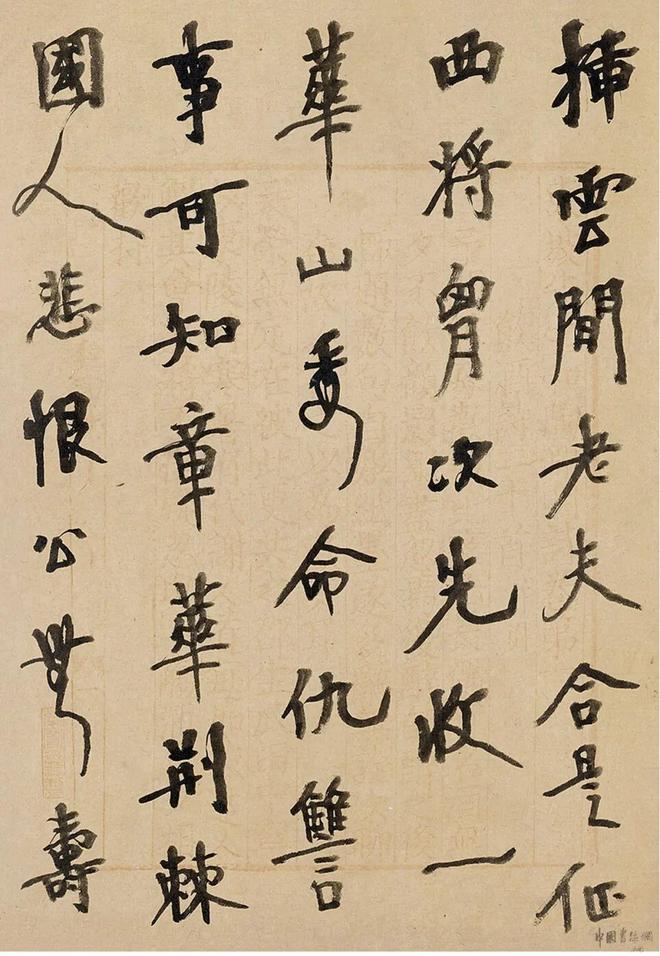 插雲間老夫合是征
西將胷次先收一
華山委命仇讎
事可知章華荆棘
國人悲恨公無壽
中國書法網